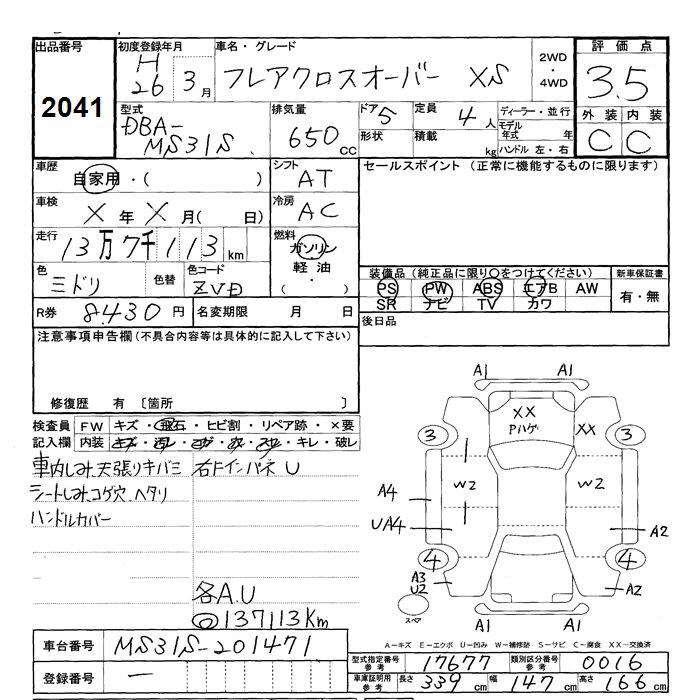 出品番号
2041
初度登録年月
H26年 3月
車名・グレード
フレアクロスオーバー XS
2WD・4WD
評価点
3.5
外装 内装
C C
型式
DBA-MS31S
排気量
650 CC
ドア 5
形状
定員 4人
積載 kg
ディーラー・並行
モデル年式 年
ハンドル 左・右
車歴
自家用・( )
シフト
AT
セールスポイント (正常に機能するものに限ります)
車検
X年X月( 日)
冷房
AC
走行
13万7千113km
燃料
ガソリン
軽油・
( )
色
ミドリ
色替
色コード
ZVD
装備品 (純正品に限り○をつけてください)
PS PW ABS エアB AW
SR ナビ TV カワ
新車保証書
有・無
R券 8430円
名変期限 月 日
後日品
注意事項申告欄 (不具合内容等は具体的に記入して下さい)
修復歴 有 〔箇所 〕
検査員記入欄
FW キズ・飛石・ヒビ割・リペア跡・×要
内装 キズ・汚レ・コゲ・穴・スレ・キレ・破レ
車内しみ、天張りキバミ 右Fインパネ U
シートしみ、コゲ穴、ヘタリ
ハンドルカバー
各A.U
◎137113Km
A1 A1
XX
Pハゲ
XX
3 3
W2 W2
A4
UA4 A2
4 4
A3
U2
A2
スペア
A1 A1
A-キズ E-エクボ U-凹み W-補修跡 S-サビ C-腐食 XX-交換済
車台番号 MS31S-201471
登録番号 —
型式指定番号 参考 17677
類別区分番号 参考 0016
車庫証明用 参考 長さ 339cm 幅 147cm 高さ 166cm